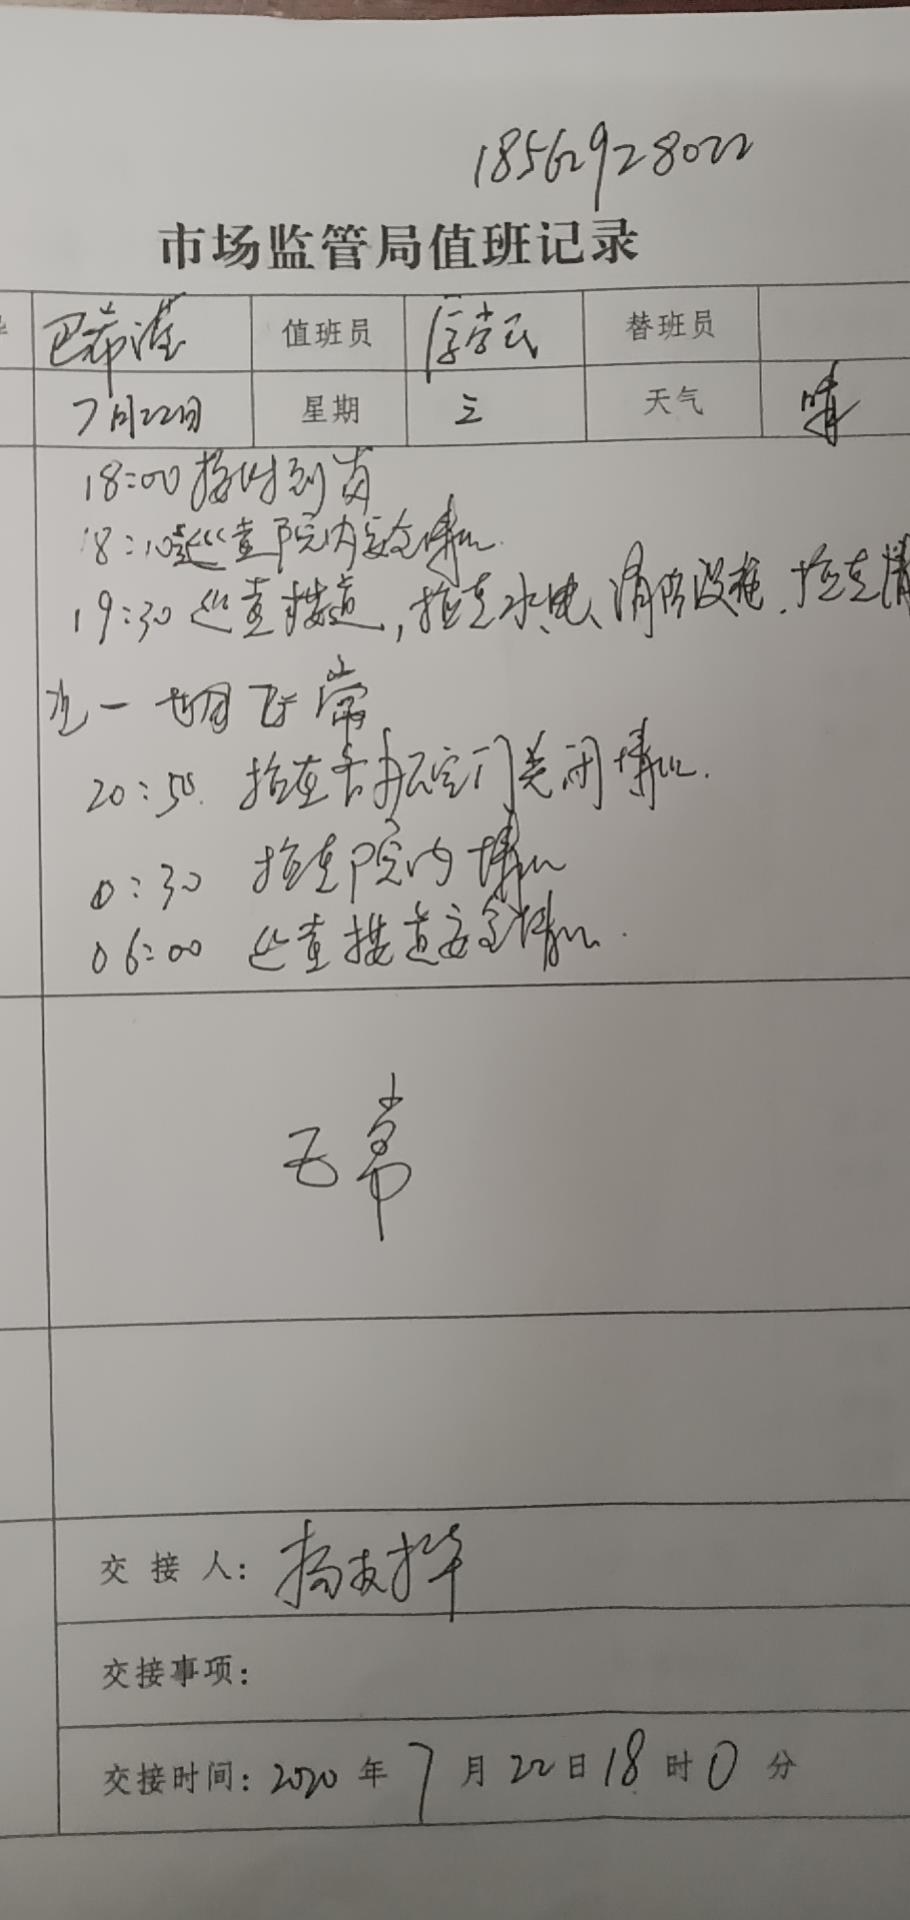 18562928022
市场监管局值班记录
巴希滢 值班员 替班员
7月22日 星期 三 天气 晴
18:00 按时到岗
18:10 巡查院内安全情况.
19:30 巡查楼道,检查水、电、消防设施.检查情
况一切正常
20:50. 检查各办公室门关闭情况.
0:30 检查院内情况
06:00 巡查楼道安全情况.
正常
交接人: 杨友华
交接事项:
交接时间: 2020年7月22日18时0分